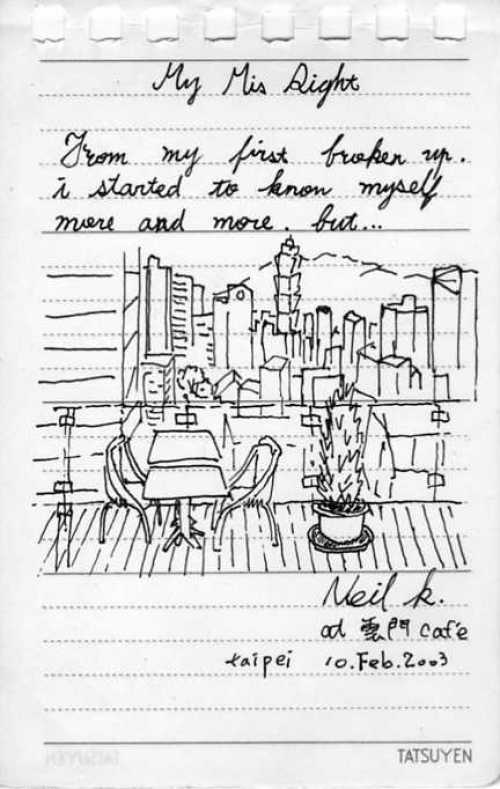 My Mis Right
From my first broken up.
i started to know myself
more and more. but...
Neil k.
at 雲門 café
taipei 10.Feb.2003
TATSUYEN